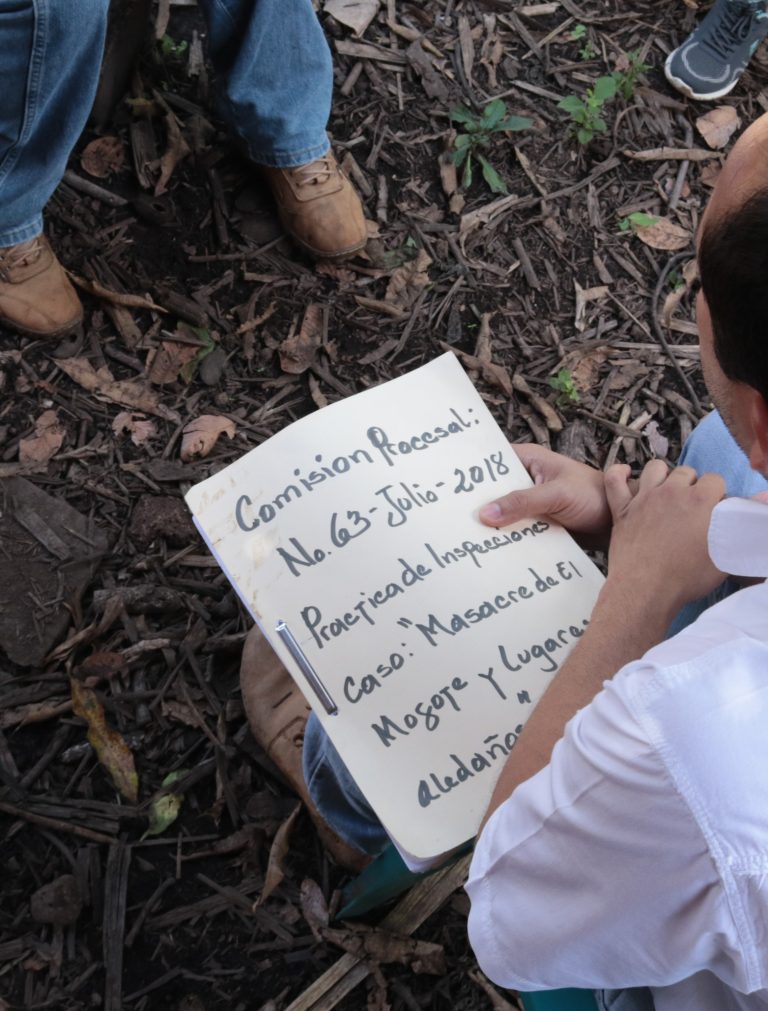 Comisión Procesal:
No. 63-Julio-2018
Practica de Inspecciones
Caso: "Masacre de El
Mozote Y Lugares
aledaños"